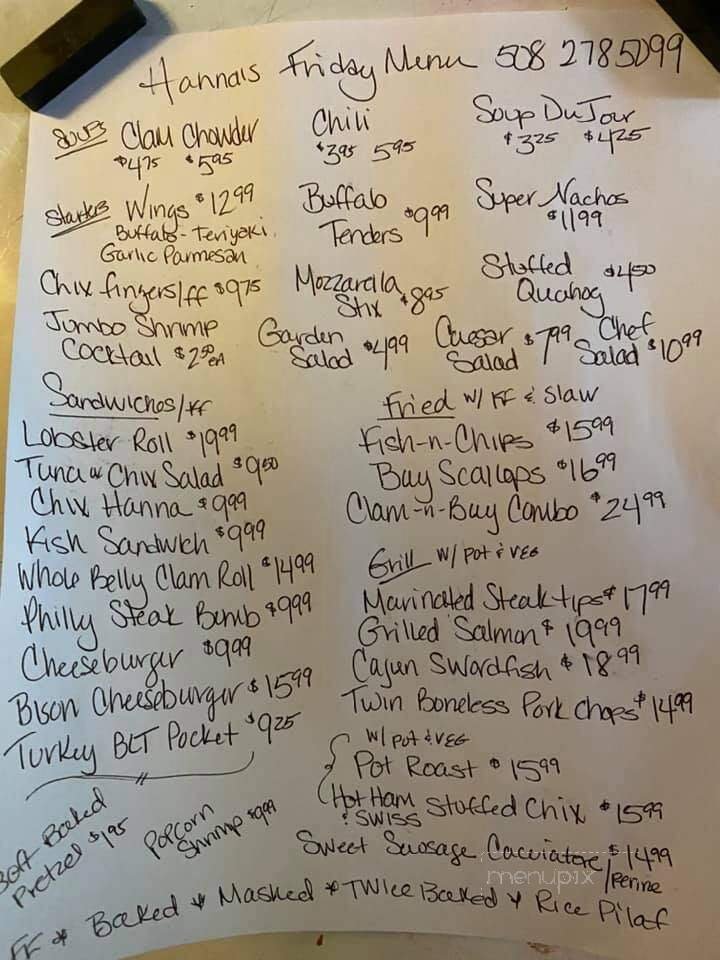 Hanna's Friday Menu 508 278 5099
Soups Clam Chowder Chili Soup Du Jour
$4.75 $5.95 $3.95 5.95 $3.25 $4.25
Starters Wings $12.99 Buffalo Tenders $9.99 Super Nachos $11.99
Buffalo - Teriyaki
Garlic Parmesan
Chix fingers/ff $9.75 Mozzarella Stix $8.95 Stuffed Quahog $4.50
Jumbo Shrimp Cocktail $2.50 ea Garden Salad $4.99 Caesar Salad $7.99 Chef Salad $10.99
Sandwiches/ff
Lobster Roll $19.99
Tuna or Chix Salad $9.50
Chix Hanna $9.99
Fish Sandwich $9.99
Whole Belly Clam Roll $14.99
Philly Steak Bomb $9.99
Cheeseburger $9.99
Bison Cheeseburger $15.99
Turkey BLT Pocket $9.25
Soft Baked Pretzel $1.95
Popcorn Shrimp $9.99
Fried w/ FF & Slaw
Fish-n-Chips $15.99
Bay Scallops $16.99
Clam-n-Bay Combo $24.99
Grill w/ pot & veg
Marinated Steak tips $17.99
Grilled Salmon $19.99
Cajun Swordfish $18.99
Twin Boneless Pork Chops $14.99
w/ pot & veg
Pot Roast $15.99
Hot Ham & Swiss Stuffed Chix $15.99
Sweet Sausage Cacciatore/penne $14.99
FF * Baked * Mashed * Twice Baked * Rice Pilaf
menupix